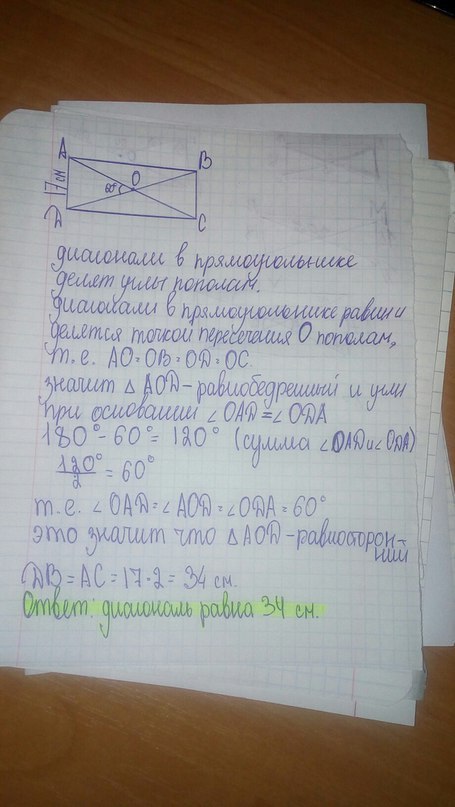 A
B
O
60°
17 см
D
C
диагонали в прямоугольнике
делят углы пополам.
диагонали в прямоугольнике равны и
делятся точкой пересечения O пополам,
т.е. AO=OB=OD=OC.
значит △ AOD-равнобедренный и углы
при основании ∠OAD=∠ODA
180°-60°=120° (сумма ∠OAD и ∠ODA)
120°/2 = 60°
т.е. ∠OAD=∠AOD=∠ODA=60°
это значит что △AOD-равносторон-
ний
DB=AC=17·2=34 см.
Ответ: диагональ равна 34 см.